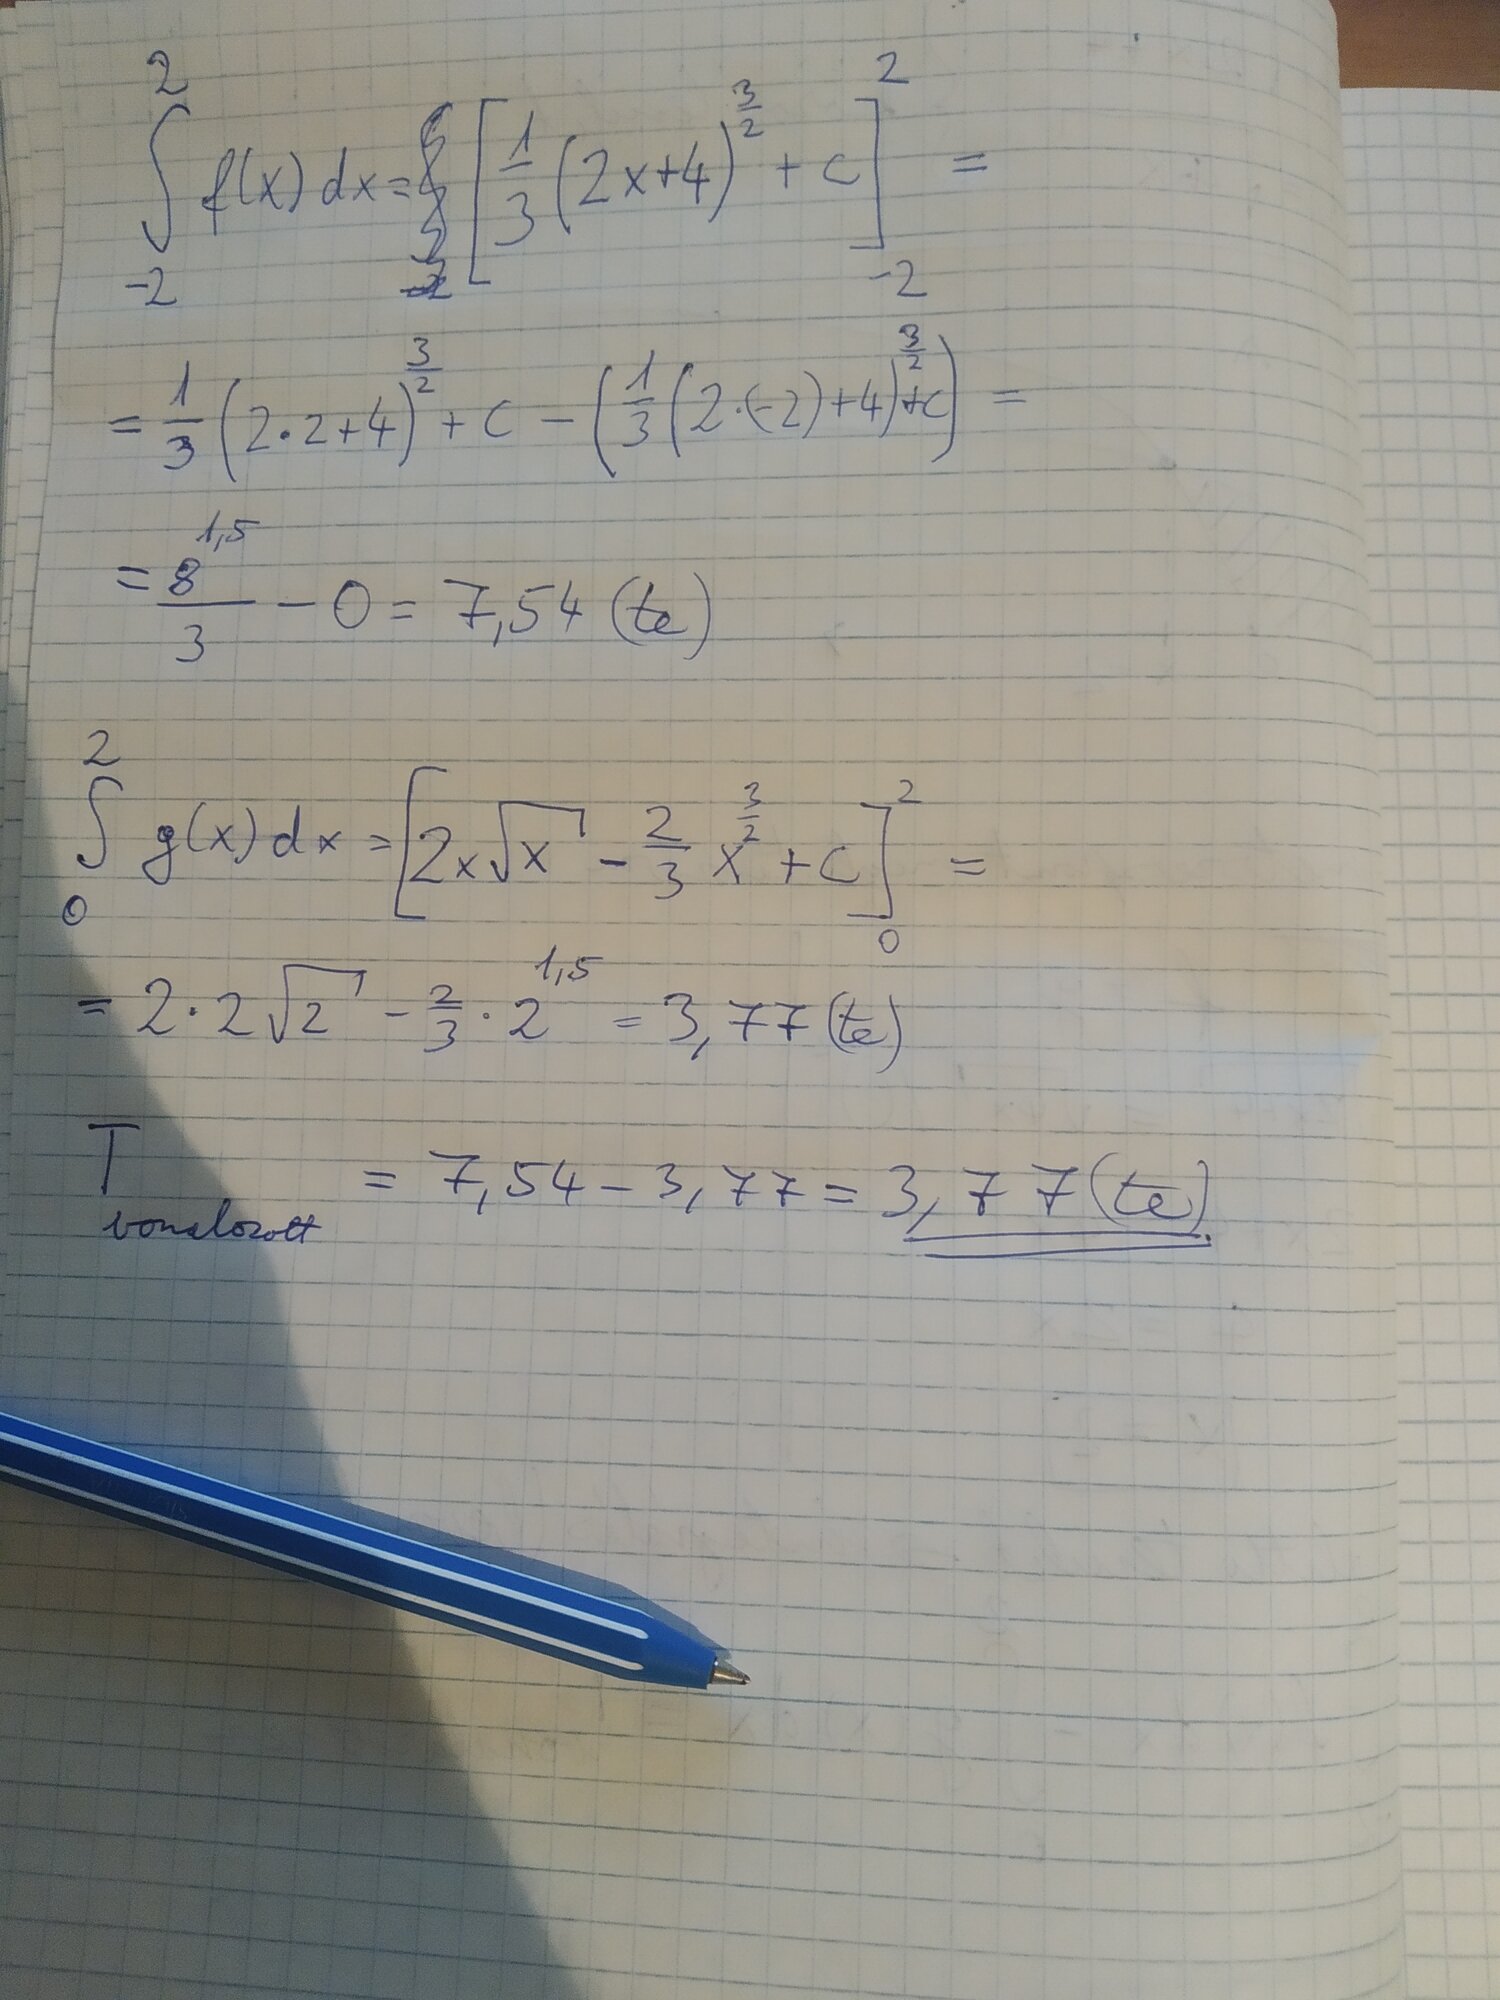 ∫_{-2}^{2} f(x) dx = [1/3 (2x+4)^{3/2} + c]_{-2}^{2} =
= 1/3 (2·2+4)^{3/2} + c − (1/3 (2·(-2)+4)^{3/2} + c) =
= 8^{1,5}/3 − 0 = 7,54 (te)
∫_{0}^{2} g(x) dx = [2x√x − 2/3 x^{3/2} + c]_{0}^{2} =
= 2·2√2 − 2/3 · 2^{1,5} = 3,77 (te)
T_{vonalozott} = 7,54 − 3,77 = 3,77 (te)